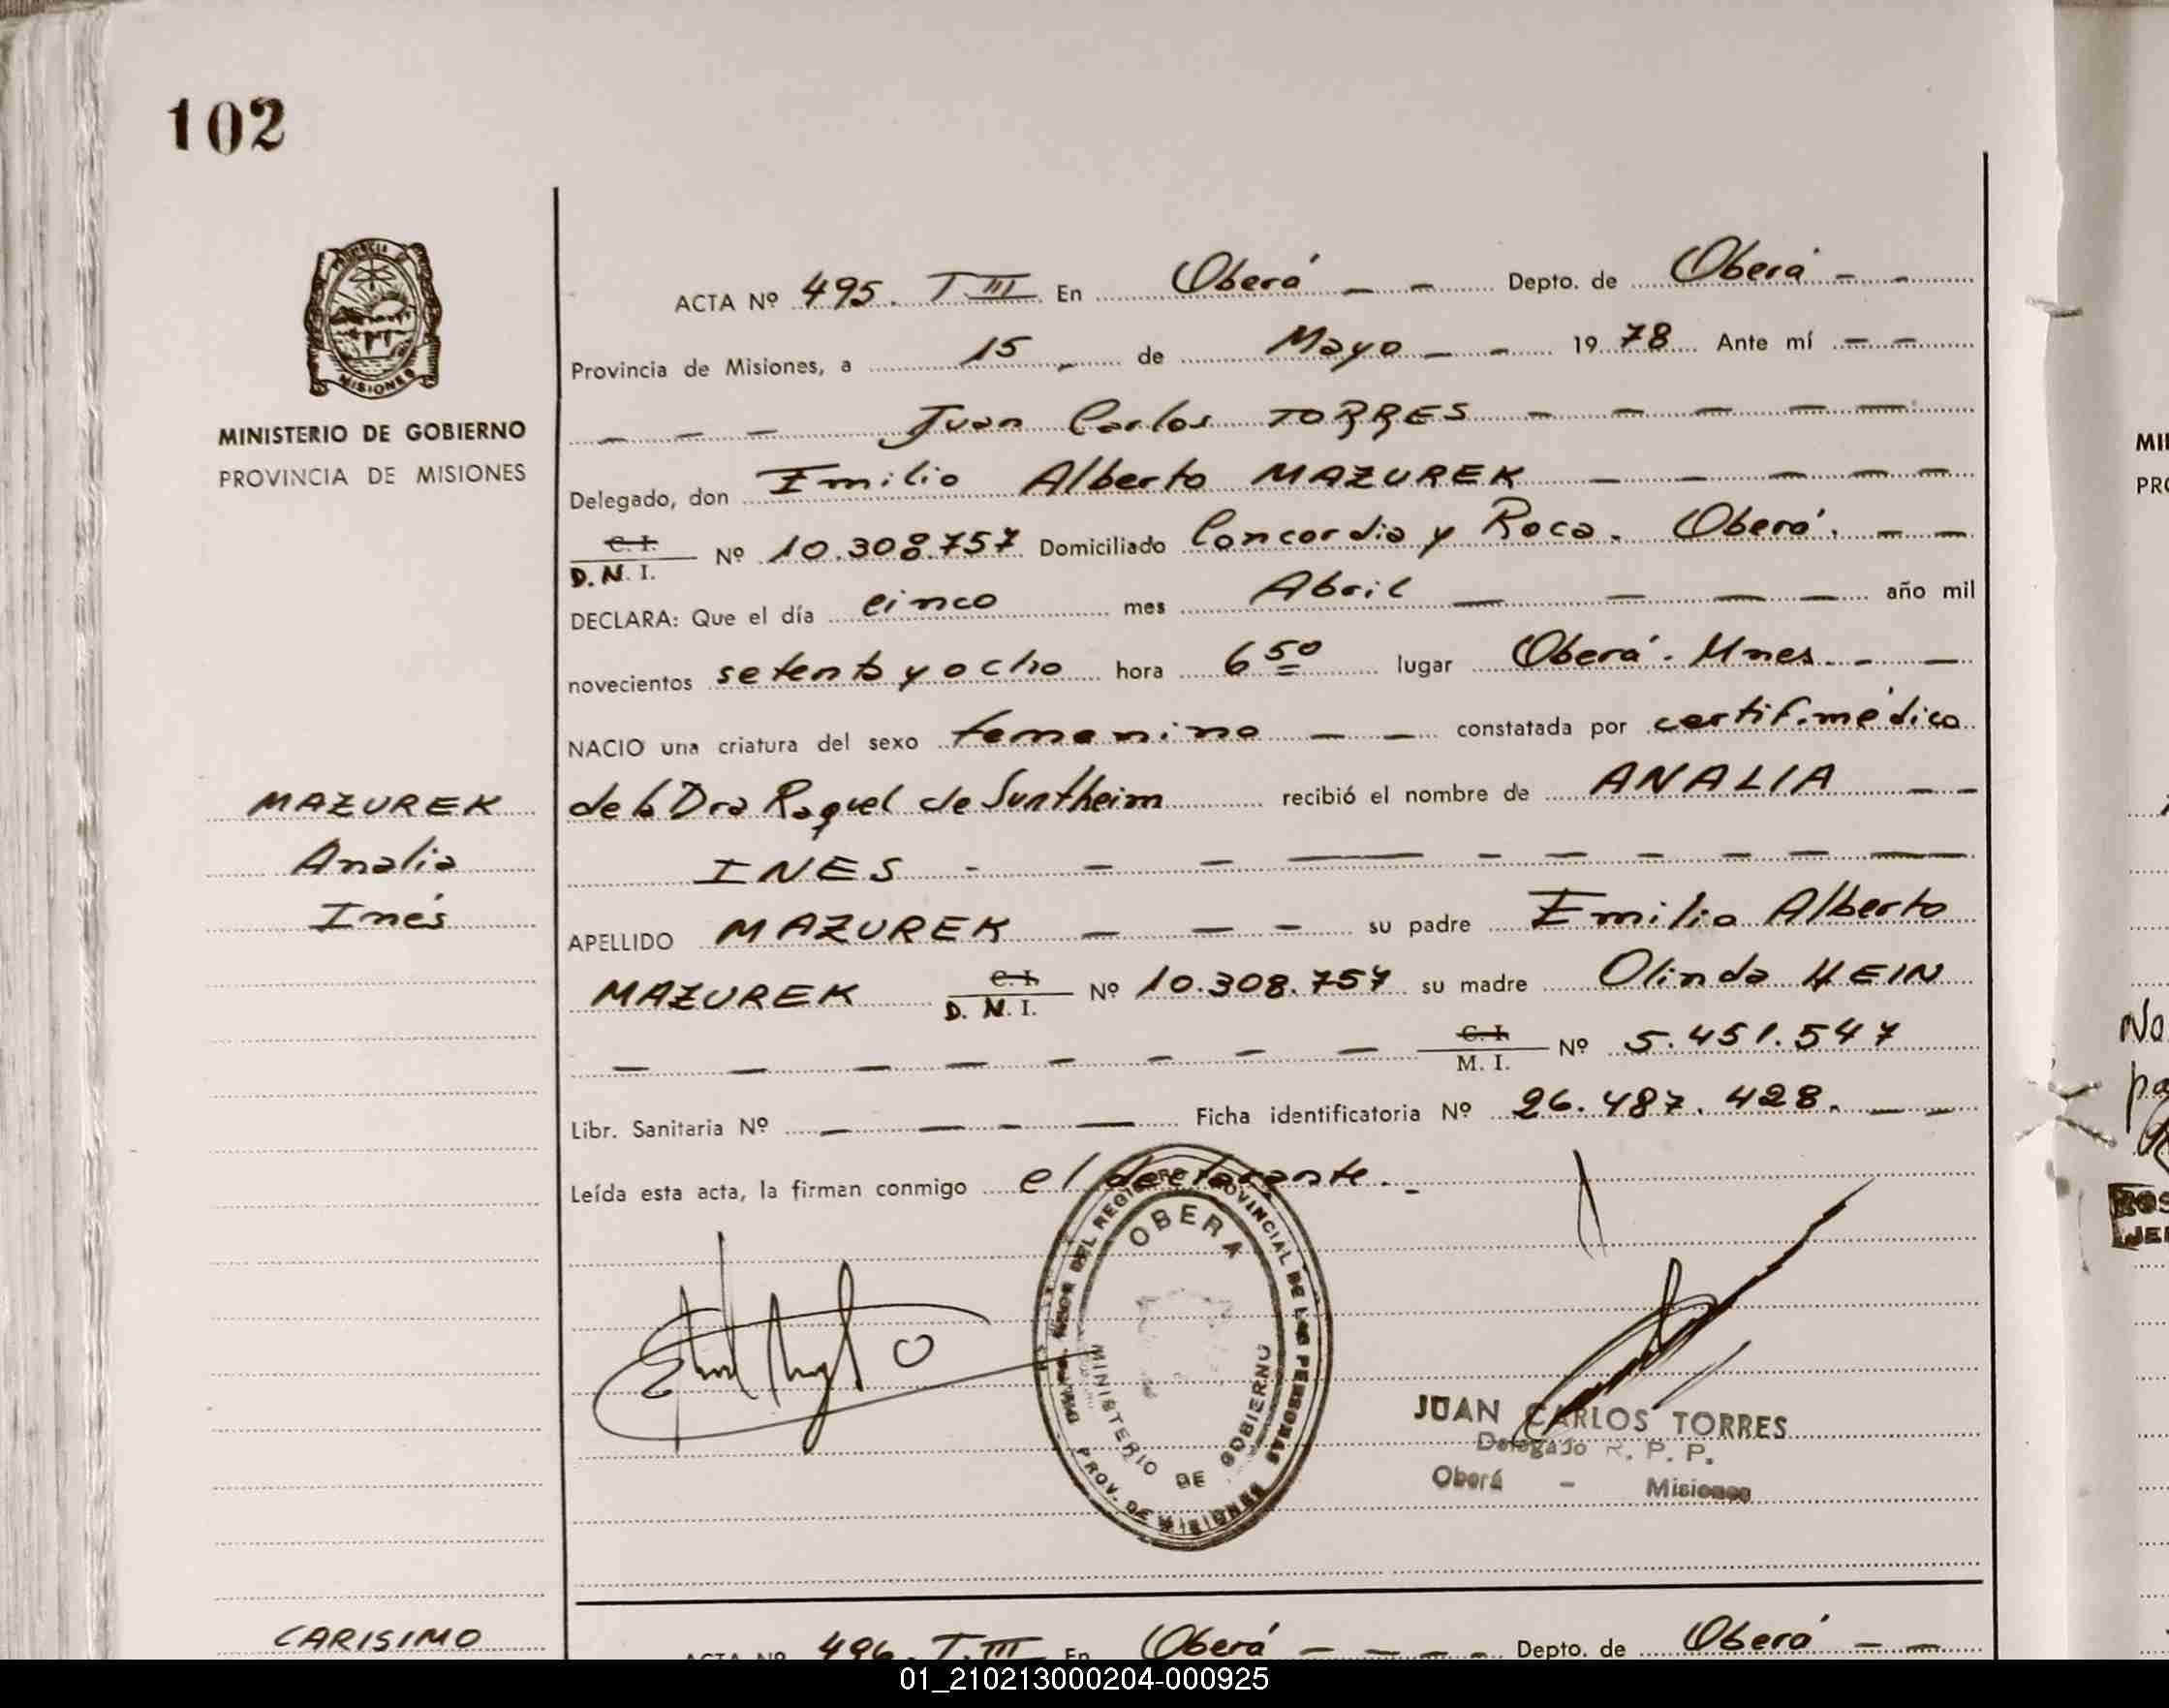 102
PROVINCIA DE
MISIONES
MINISTERIO DE GOBIERNO
PROVINCIA DE MISIONES
MAZUREK
Analia
Inés
ACTA Nº 495. T III En Oberá — — Depto. de Oberá — —
Provincia de Misiones, a 15 — de Mayo — — 1978 Ante mí — —
— — — Juan Carlos TORRES — — — — —
Delegado, don Emilio Alberto MAZUREK — — — — —
C. I.
D. N. I. Nº 10.308.757 Domiciliado Concordia y Roca. Oberá. — —
DECLARA: Que el día cinco mes Abril — — — — año mil
novecientos setenta y ocho hora 6 50 lugar Oberá. Mnes. — —
NACIO una criatura del sexo femenino — — constatada por certif. médico
de la Dra Raquel de Suntheim recibió el nombre de ANALIA — —
INES - — — — - — — — — —
APELLIDO MAZUREK — — — su padre Emilio Alberto
MAZUREK C. I. D. N. I. Nº 10.308.757 su madre Olinda HEIN
— — — — — — — — C. I. M. I. Nº 5.451.547
Libr. Sanitaria Nº — — — — Ficha identificatoria Nº 26.487.428. — —
Leída esta acta, la firman conmigo el declarante. -
DEL REGISTRO PROVINCIAL DE LAS PERSONAS
OBERA
MINISTERIO DE GOBIERNO
PROV. DE MISIONES
JUAN CARLOS TORRES
Delegado R. P. P.
Oberá - Misiones
CARISIMO
ACTA Nº 496. T. III En Oberá — — — — Depto. de Oberá — —
MI
PR
No
pa
ROS
JE
01_210213000204-000925